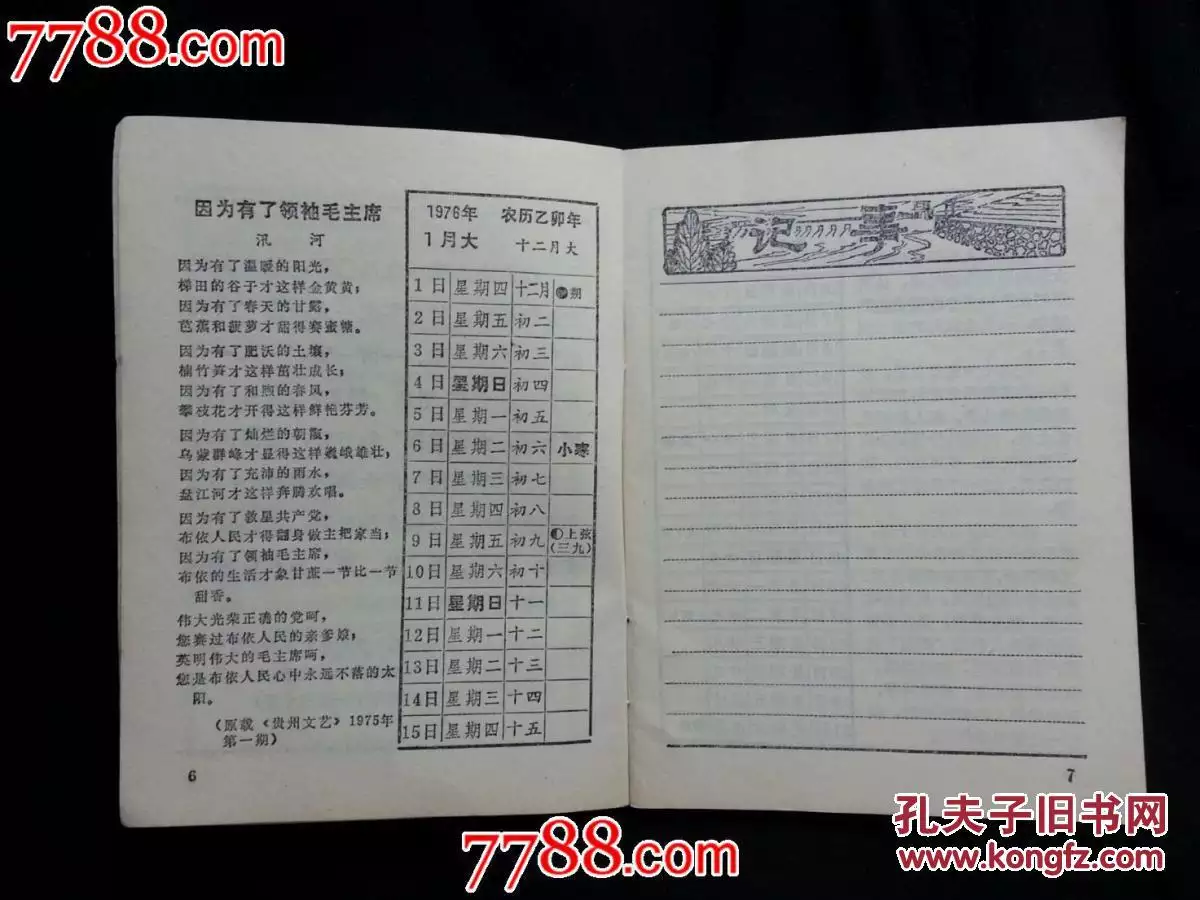 7788.com
因为有了领袖毛主席
汛 河
因为有了温暖的阳光,
梯田的谷子才这样金黄黄;
因为有了春天的甘露,
芭蕉和菠萝才甜得赛蜜糖。
因为有了肥沃的土壤,
楠竹笋才这样茁壮成长;
因为有了和煦的春风,
攀枝花才开得这样鲜艳芬芳。
因为有了灿烂的朝霞,
乌蒙群峰才显得这样巍峨雄壮;
因为有了充沛的雨水,
盘江河才这样奔腾欢唱。
因为有了救星共产党,
布依人民才得翻身做主把家当;
因为有了领袖毛主席,
布依的生活才象甘蔗一节比一节
甜香。
伟大光荣正确的党呵,
您赛过布依人民的亲爹娘;
英明伟大的毛主席呵,
您是布依人民心中永远不落的太
阳。
(原载《贵州文艺》1975年
第一期)
6
1976年 农历乙卯年
1月大 十二月大
1日 星期四 十二月 朔
2日 星期五 初二
3日 星期六 初三
4日 星期日 初四
5日 星期一 初五
6日 星期二 初六 小寒
7日 星期三 初七
8日 星期四 初八
9日 星期五 初九 上弦
(三九)
10日 星期六 初十
11日 星期日 十一
12日 星期一 十二
13日 星期二 十三
14日 星期三 十四
15日 星期四 十五
记事
7
7788.com
孔夫子旧书网
www.kongfz.com